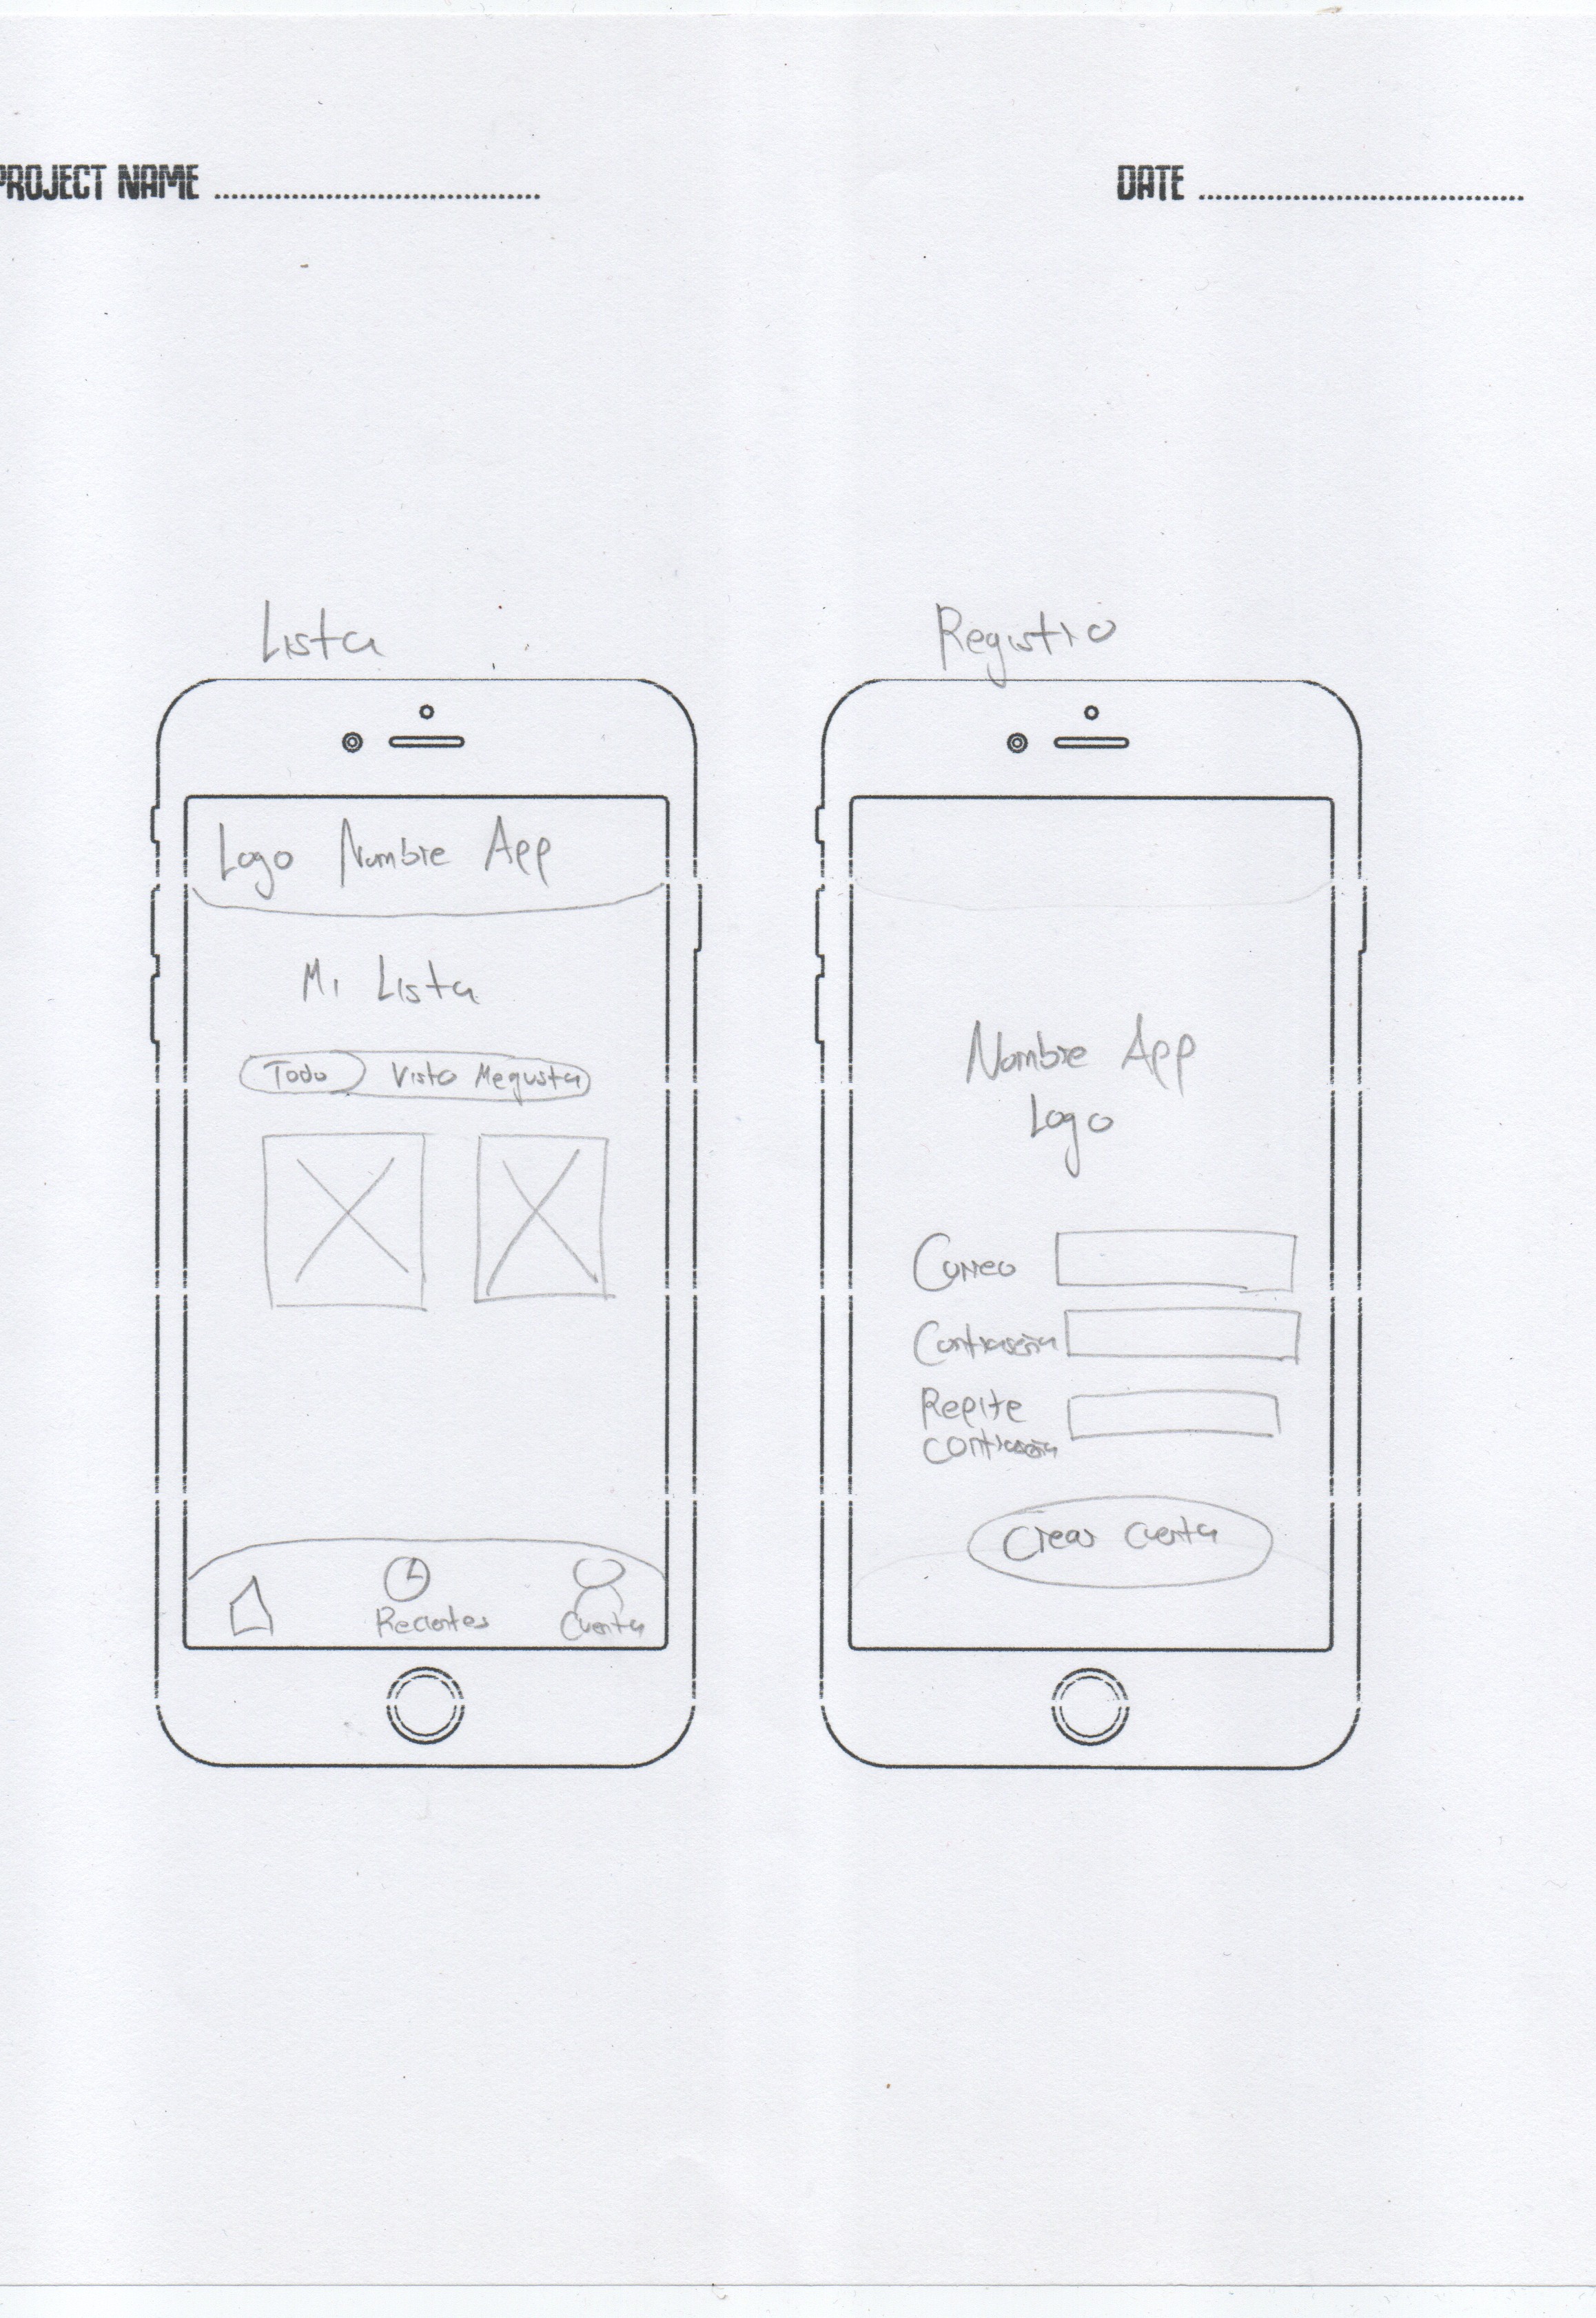 PROJECT NAME
DATE
Lista
Logo Nombre App
Mi Lista
Todo Visto Megusta
Recientes
Cuenta
Registro
Nombre App
Logo
Correo
Contraseña
Repite
contraseña
Crear cuenta